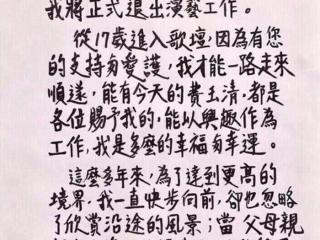 我將正式退出演藝工作。
從17歲進入歌壇,因為有您
的支持與愛護,我才能一路走來
順遂,能有今天的費玉清,都是
各位賜予我的,能以興趣作為
工作,我是多麼的幸福與幸運。
這麼多年來,為了達到更高的
境界,我一直快步向前,卻也忽略
了欣賞沿途的風景;當父母親